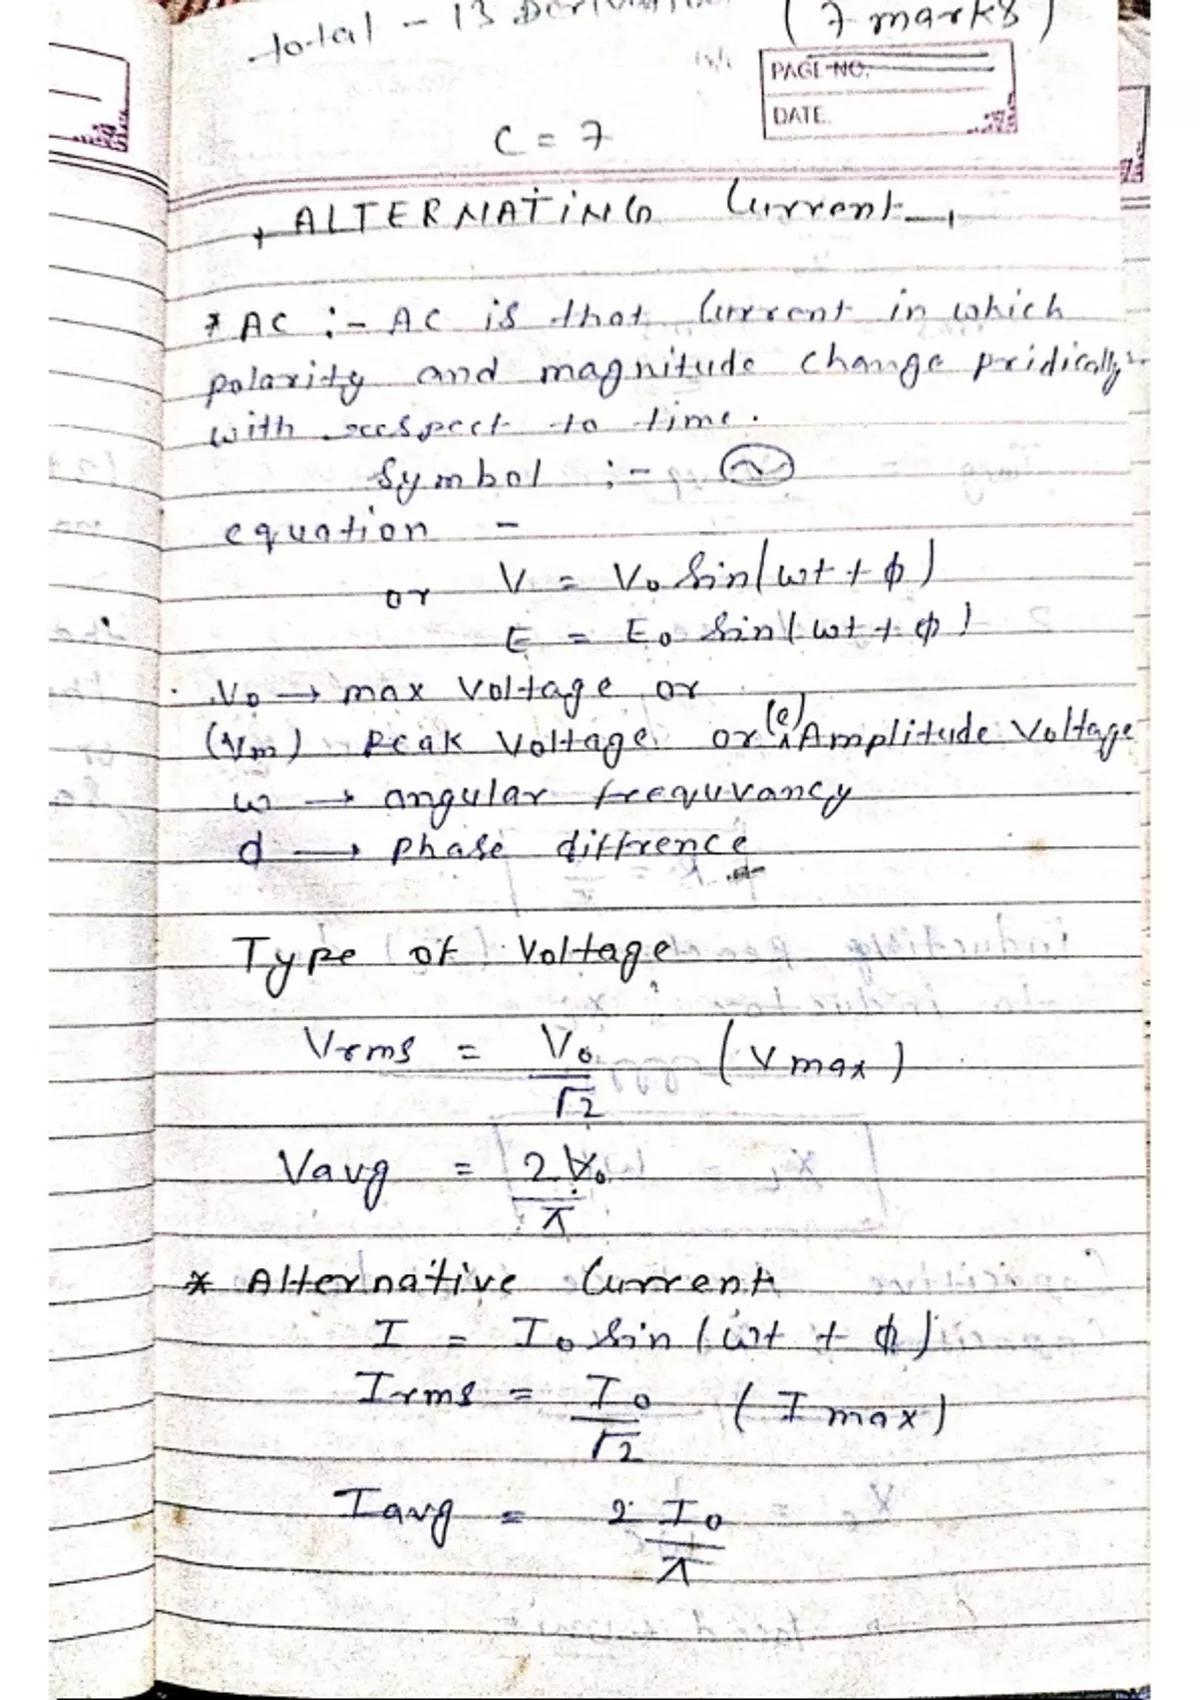 total - 13 Derivation (7 marks)
PAGE NO.
DATE.
C = 7
ALTERNATING Current
* AC :- AC is that Current in which
polarity and magnitude change pridically
with respect to time.
Symbol :-
equation -
V = V₀ sin(ωt + φ)
or
E = E₀ sin(ωt + φ)
V₀ → max Voltage or
(Vm) Peak Voltage or (e) Amplitude Voltage
ω → angular frequvancy
d → Phase diffrence
Type of Voltage
Vrms = V₀/√2 (Vmax)
Vavg = 2V₀/π
* Alternative Current
I = I₀ sin(ωt + φ)
Irms = I₀/√2 (Imax)
Iavg = 2I₀/π